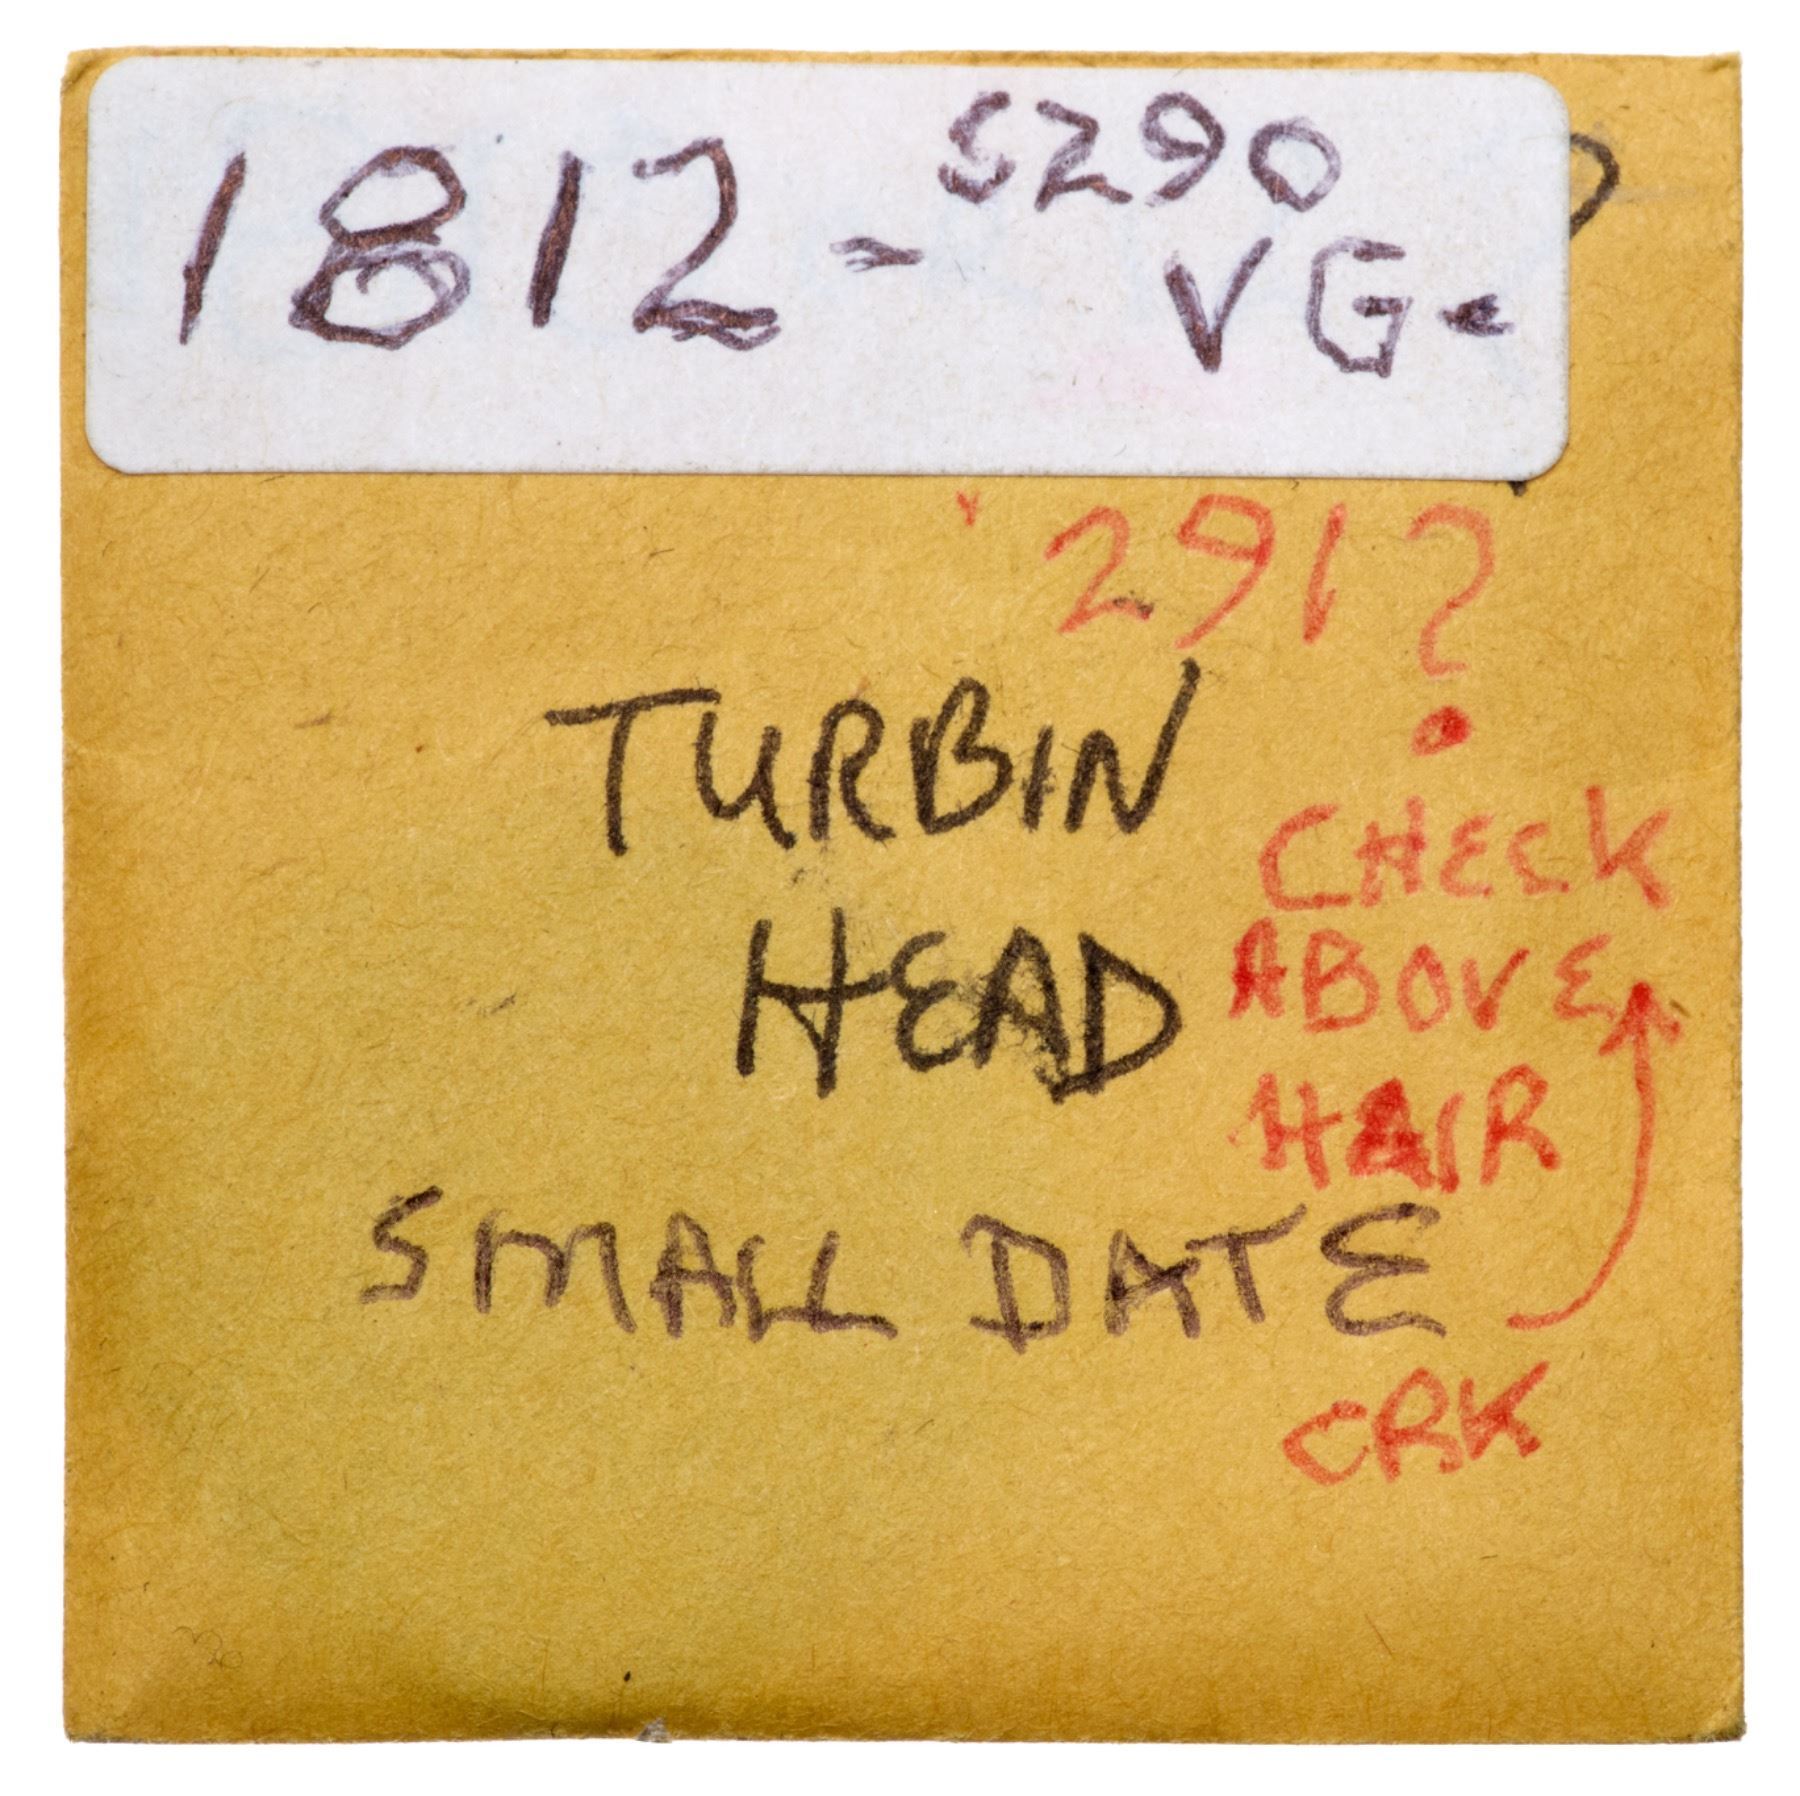 1812 - S290
VG-
291?
TURBIN
HEAD
CHECK
ABOVE
HAIR
SMALL DATE
CRK